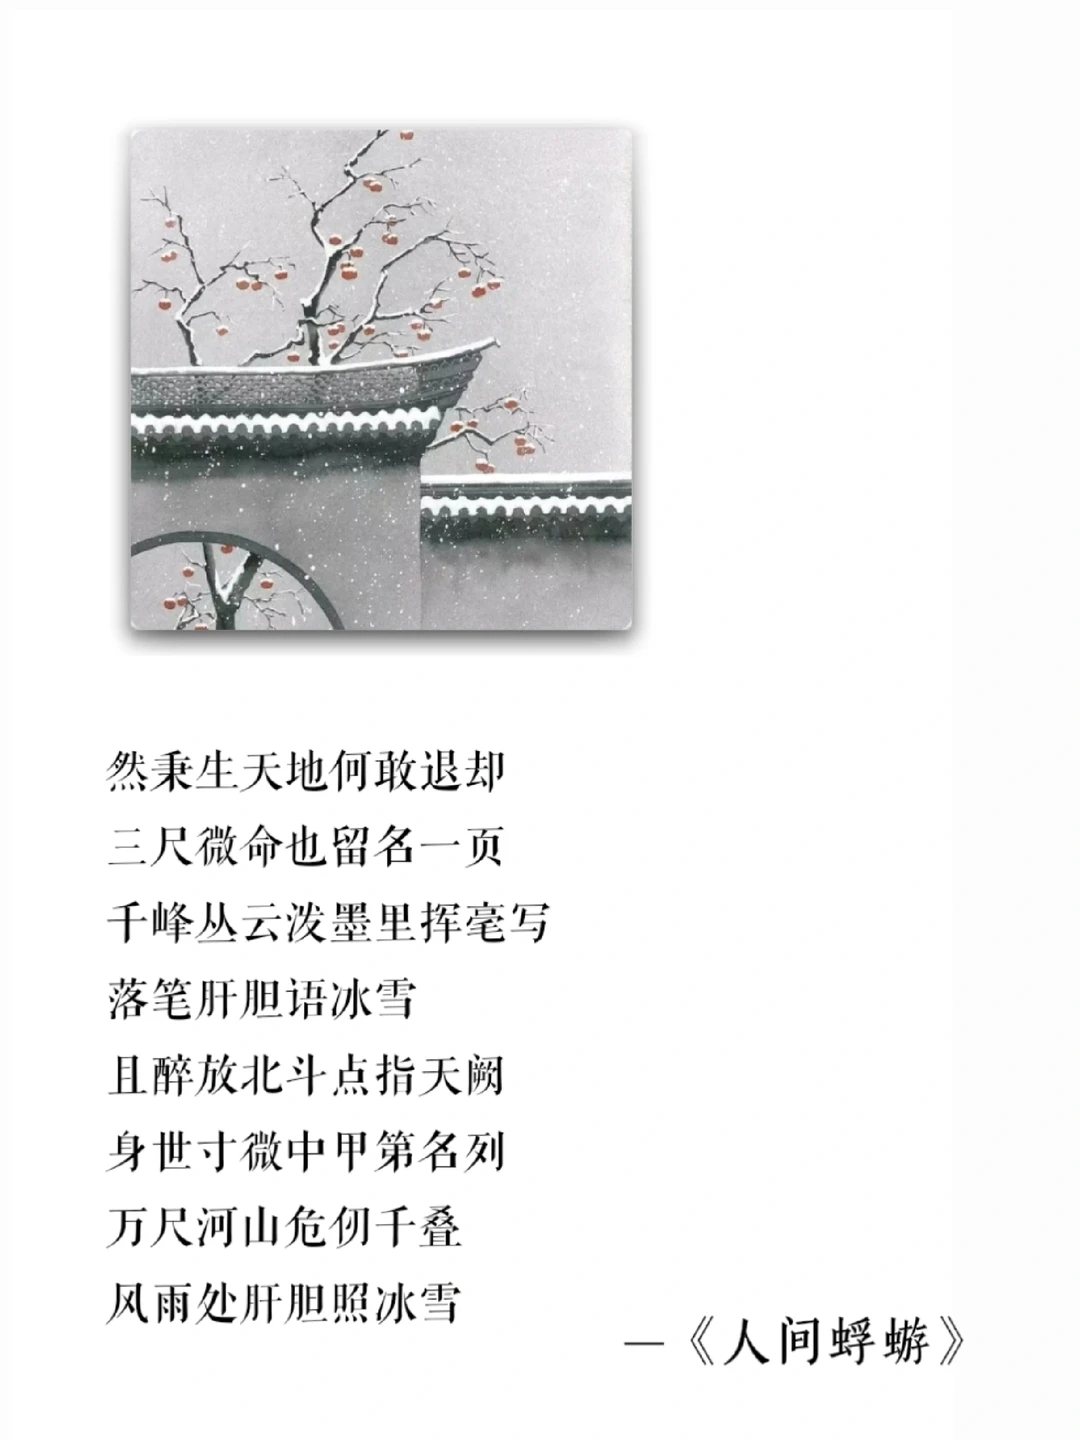 然秉生天地何敢退却
三尺微命也留名一页
千峰丛云泼墨里挥毫写
落笔肝胆语冰雪
且醉放北斗点指天阙
身世寸微中甲第名列
万尺河山危仞千叠
风雨处肝胆照冰雪
—《人间蜉蝣》